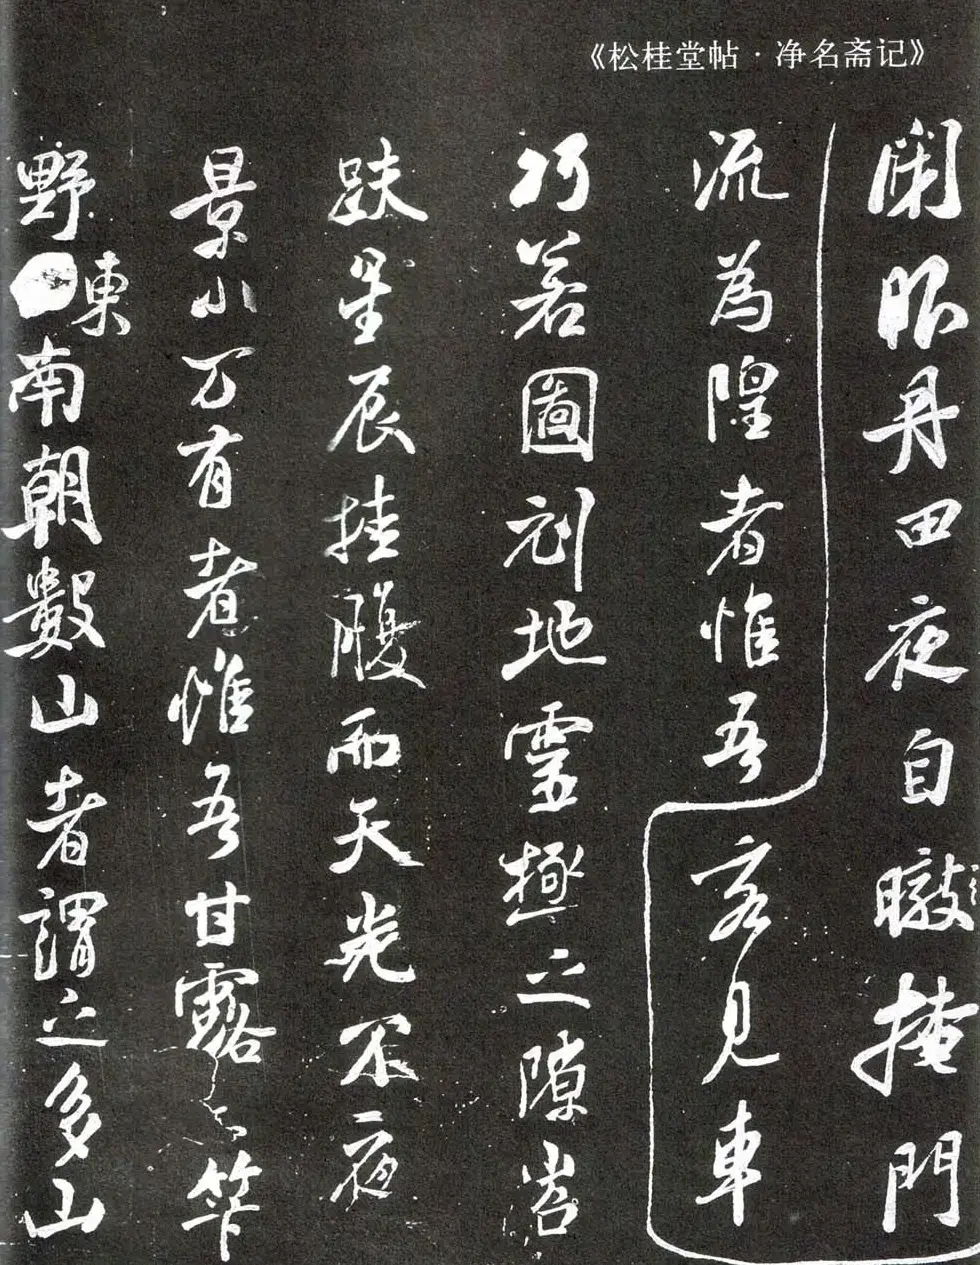 《松桂堂帖·净名斋记》
眼丹田夜自暾掩門
流為隍者惟吾客見車
巧若圖刻地靈極之隙岩
趺星辰挂腹而天光不夜
景小万有者惟吾甘露
野東南朝數山者謂之多山